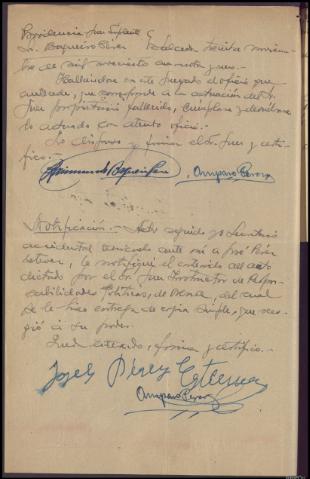 Providencia Juez
Sr. Baquero Pérez
tre de mil novecientos cuarenta y uno.
Hallándose en este Juzgado el oficio que
antecede, que corresponde a la actuación del Sr.
Juez propietario fallecido, cumplase y devuélvase
lo actuado con atento oficio.
Lo dispuso y firma el Sr. Juez y certi-
fico.
Amparo Perera
Notificación.- Acto seguido yo Secretario
accidental teniendo ante mí a José Pérez
Esteve, le notifiqué el contenido del auto
dictado por el Sr. Juez Instructor de Respon-
sabilidades Políticas, de Orense, del cual
se le hizo entrega de copia simple, que reco-
gió a su poder.
Queda enterado, firma y certifico.-
José Pérez
Amparo Perera